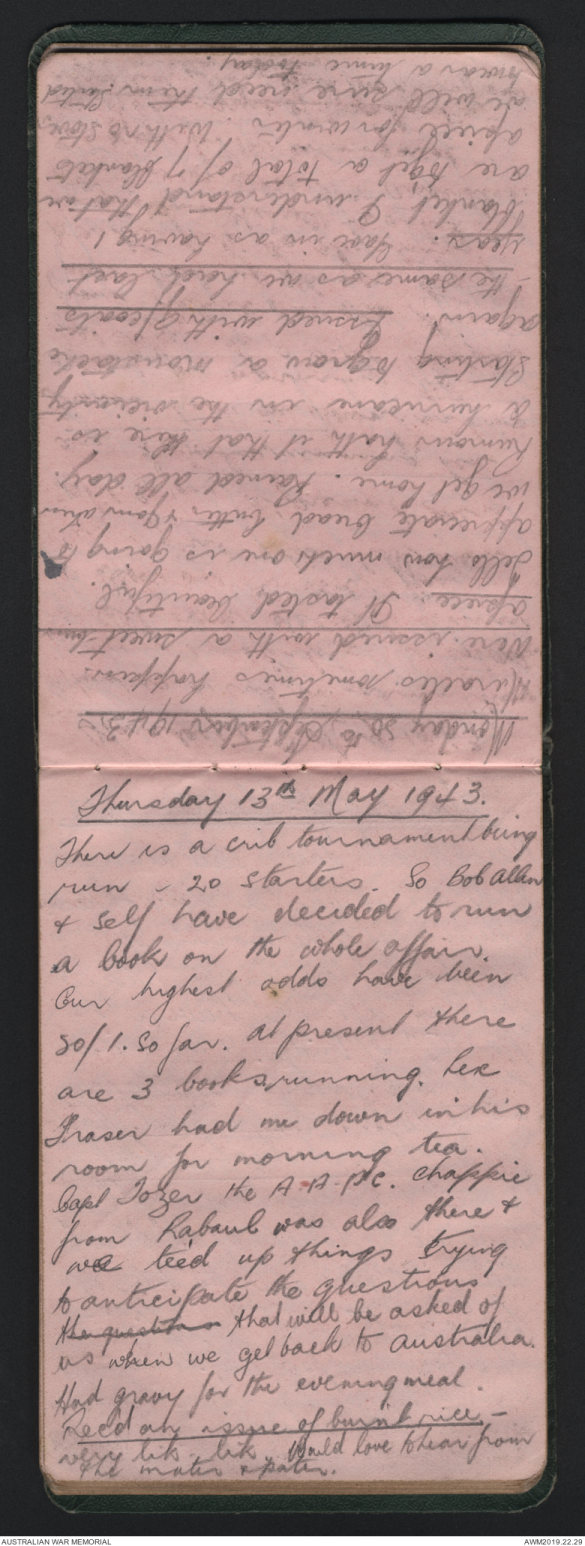 Monday 20th September 1943.
Miracles sometimes happen.
Were issued with a sweet bun
apiece. It tasted beautiful.
Tells how much one is going to
appreciate bread butter & jam when
we get home. Rained all day.
Rumour hath it that there is
a hurricane in the vicinity
Starting to grow a moustache
again. Issued with g/coats
- the same as we had last
year. Gave in as having 1
blanket. I understand that we
are to get a total of 7 blankets
apiece for winter. With no stoves
we will sure need them. Started
a line today.
Thursday 13th May 1943.
There is a crib tournament being
run - 20 starters. So Bob Allan
& self have decided to run
a book on the whole affair.
Our highest odds have been
50/1. So far. At present there
are 3 books running. Lex
Fraser had me down in his
room for morning tea.
Capt Tozer the A.A.P.C. chappie
from Rabaul was also there &
we tee'd up things trying
to anticipate the questions
the questions that will be asked of
us when we get back to Australia.
Had gravy for the evening meal.
Rec'd an issue of burnt rice -
very lik - lik. Would love to hear from
the mater & pater.
AUSTRALIAN WAR MEMORIAL
AWM2019.22.29